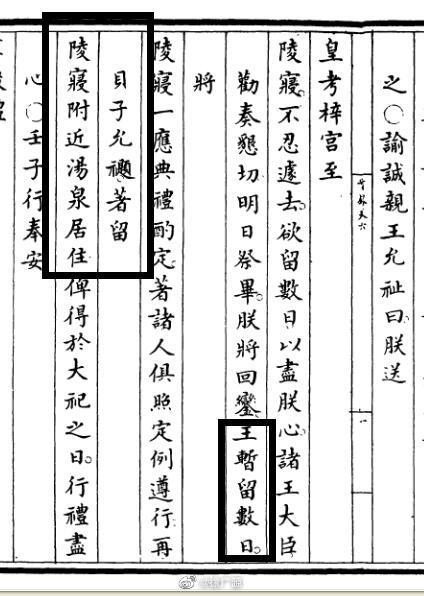 之○諭誠親王允祉曰朕送
皇考梓宮至
陵寢。不忍遽去。欲留數日以盡朕心。諸王大臣
勸奏懇切明日祭畢。朕將回鑾。王暫留數日。
將
陵寢一應典禮酌定。著諸人俱照定例遵行再
貝子允禵著留
陵寢附近湯泉居住俾得於大祀之日。行禮盡
心○壬子行奉安